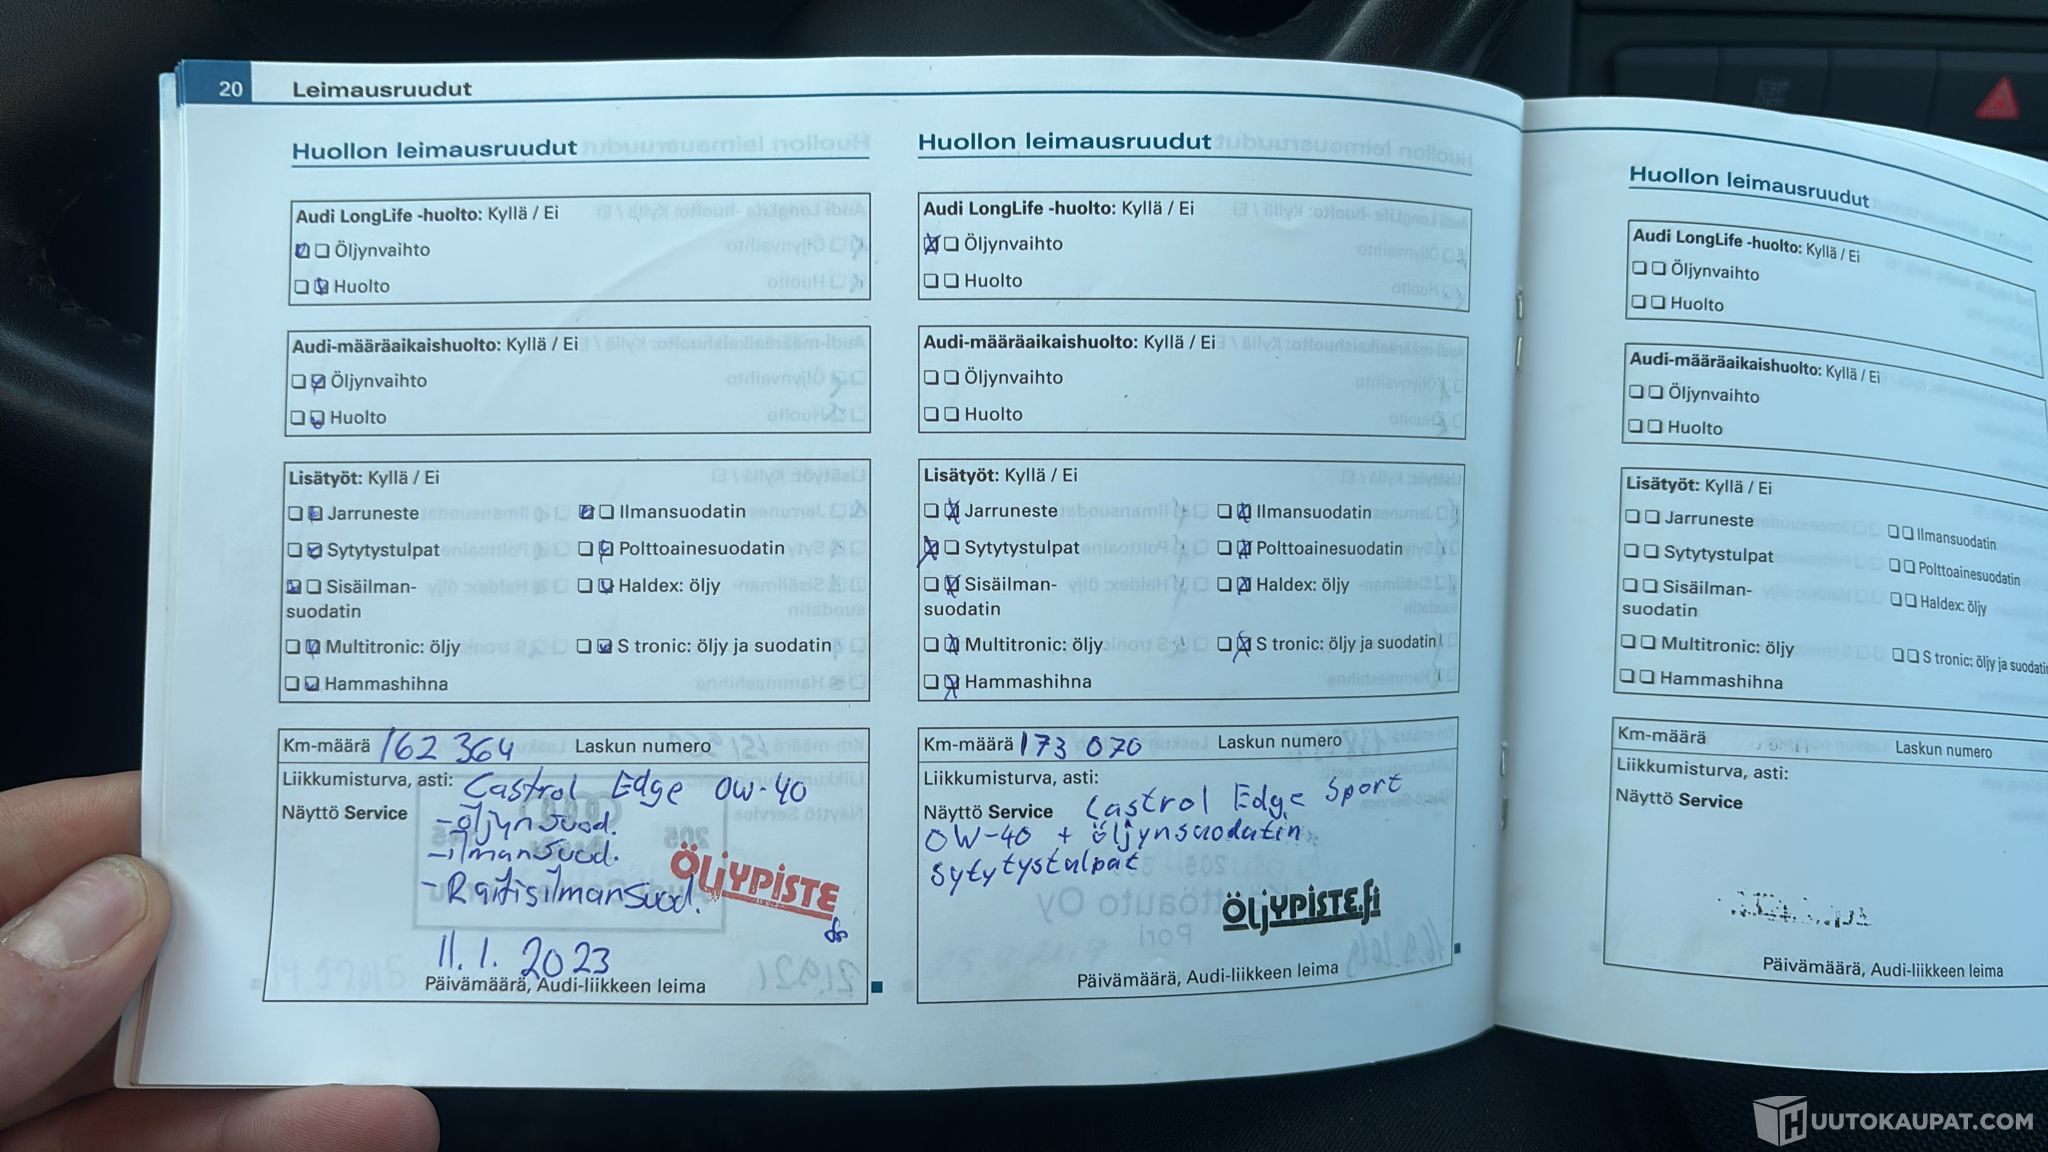 20 Leimausruudut
Huollon leimausruudut
Audi LongLife -huolto: Kyllä / Ei
Öljynvaihto
Huolto
Audi-määräaikaishuolto: Kyllä / Ei
Öljynvaihto
Huolto
Lisätyöt: Kyllä / Ei
Jarruneste Ilmansuodatin
Sytytystulpat Polttoainesuodatin
Sisäilman- Haldex: öljy
suodatin
Multitronic: öljy S tronic: öljy ja suodatin
Hammashihna
Km-määrä 162 364 Laskun numero
Liikkumisturva, asti: Castrol Edge 0W-40
Näyttö Service -öljynsuod.
-ilmansuod.
-Raitisilmansuod.
ÖLJYPISTE
11.1. 2023
Päivämäärä, Audi-liikkeen leima
Huollon leimausruudut
Audi LongLife -huolto: Kyllä / Ei
Öljynvaihto
Huolto
Audi-määräaikaishuolto: Kyllä / Ei
Öljynvaihto
Huolto
Lisätyöt: Kyllä / Ei
Jarruneste Ilmansuodatin
Sytytystulpat Polttoainesuodatin
Sisäilman- Haldex: öljy
suodatin
Multitronic: öljy S tronic: öljy ja suodatin
Hammashihna
Km-määrä 173 070 Laskun numero
Liikkumisturva, asti:
Näyttö Service Castrol Edge Sport
0W-40 + öljynsuodatin
Sytytystulpat
ÖLJYPISTE.fi
Päivämäärä, Audi-liikkeen leima
Huollon leimausruudut
Audi LongLife -huolto: Kyllä / Ei
Öljynvaihto
Huolto
Audi-määräaikaishuolto: Kyllä / Ei
Öljynvaihto
Huolto
Lisätyöt: Kyllä / Ei
Jarruneste Ilmansuodatin
Sytytystulpat Polttoainesuodatin
Sisäilman- Haldex: öljy
suodatin
Multitronic: öljy S tronic: öljy ja suodatin
Hammashihna
Km-määrä Laskun numero
Liikkumisturva, asti:
Näyttö Service
Päivämäärä, Audi-liikkeen leima
HUUTOKAUPAT.COM